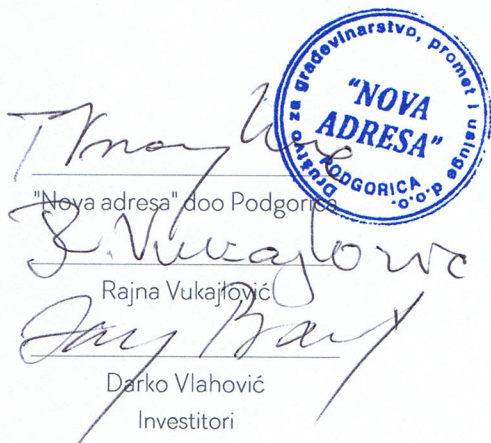 Društvo za građevinarstvo, promet i usluge d.o.o.
"NOVA
ADRESA"
PODGORICA
"Nova adresa" doo Podgorica
R. Vukajlović
Rajna Vukajlović
Darko Vlahović
Investitori